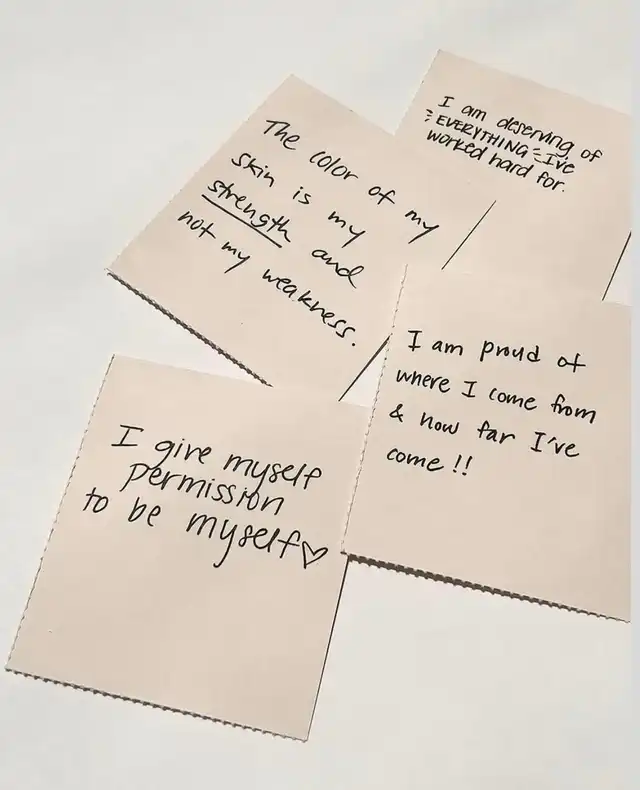 I am deserving of
EVERYTHING I've
worked hard for.
The color of my
skin is my
strength and
not my weakness.
I am proud of
where I come from
& how far I've
come !!
I give myself
permission
to be myself♡